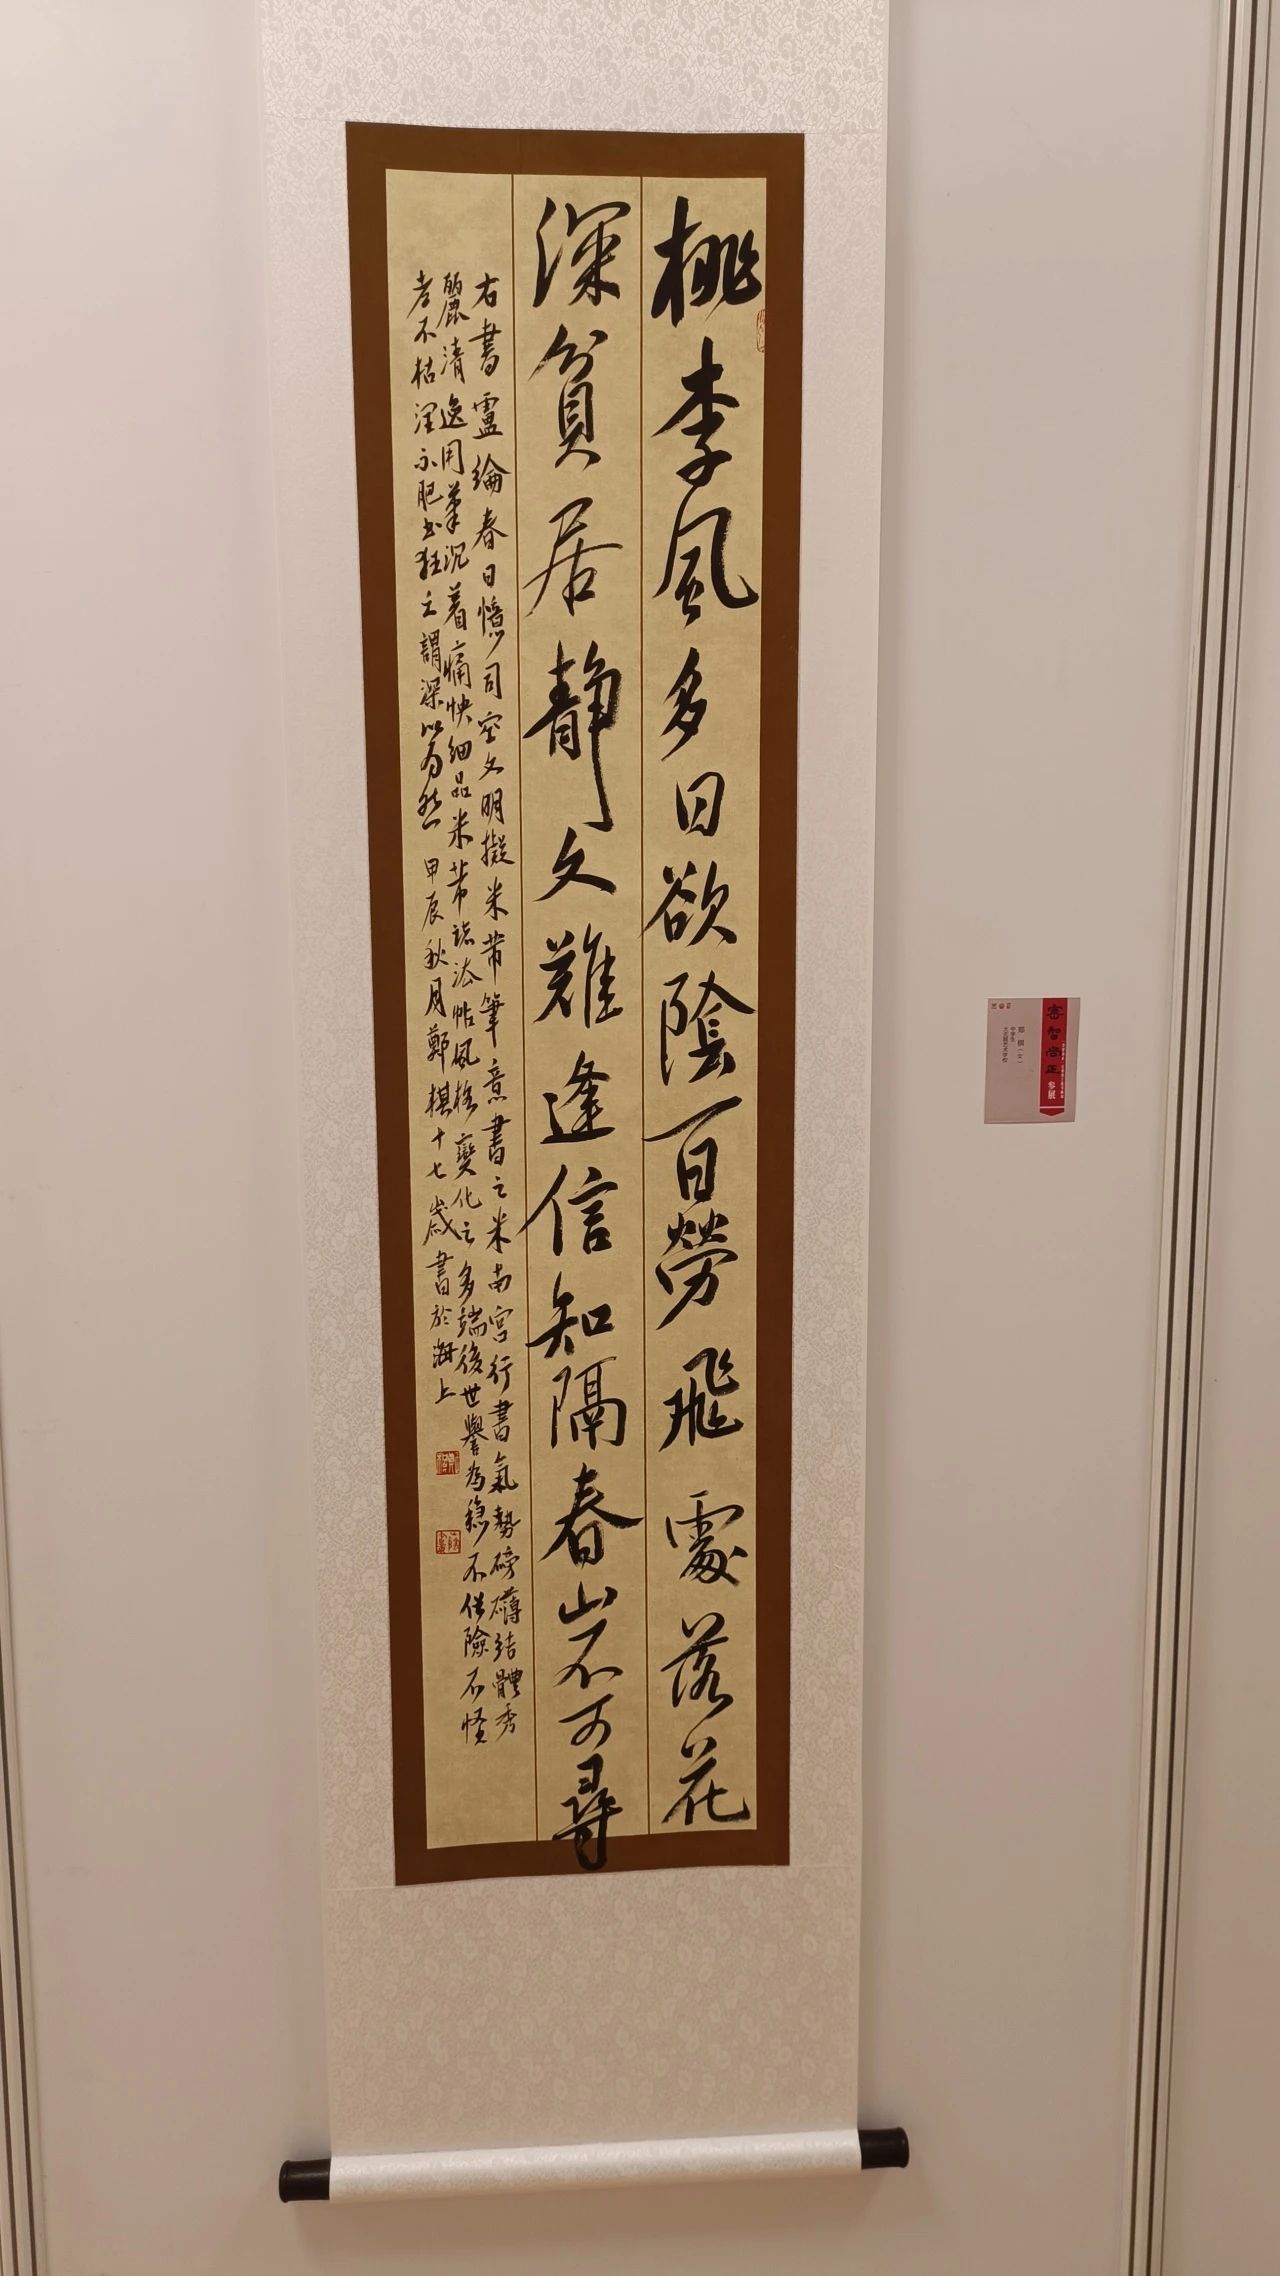 桃李風多日欲陰百勞飛處落花
深貧居静文難逢信知隔春山不可尋
右書盧綸春日憶司空文明擬米芾筆意書之米南宮行書氣勢磅礴結體秀
麗清逸用筆沉着痛快細品米芾諸法帖風格變化之多端後世譽為穩不俗險不怪
老不枯潤不肥書狂之謂深以為然 甲辰秋月鄭棋十七歲書於海上
審智尚正
参展
郑棋（女）
中学生